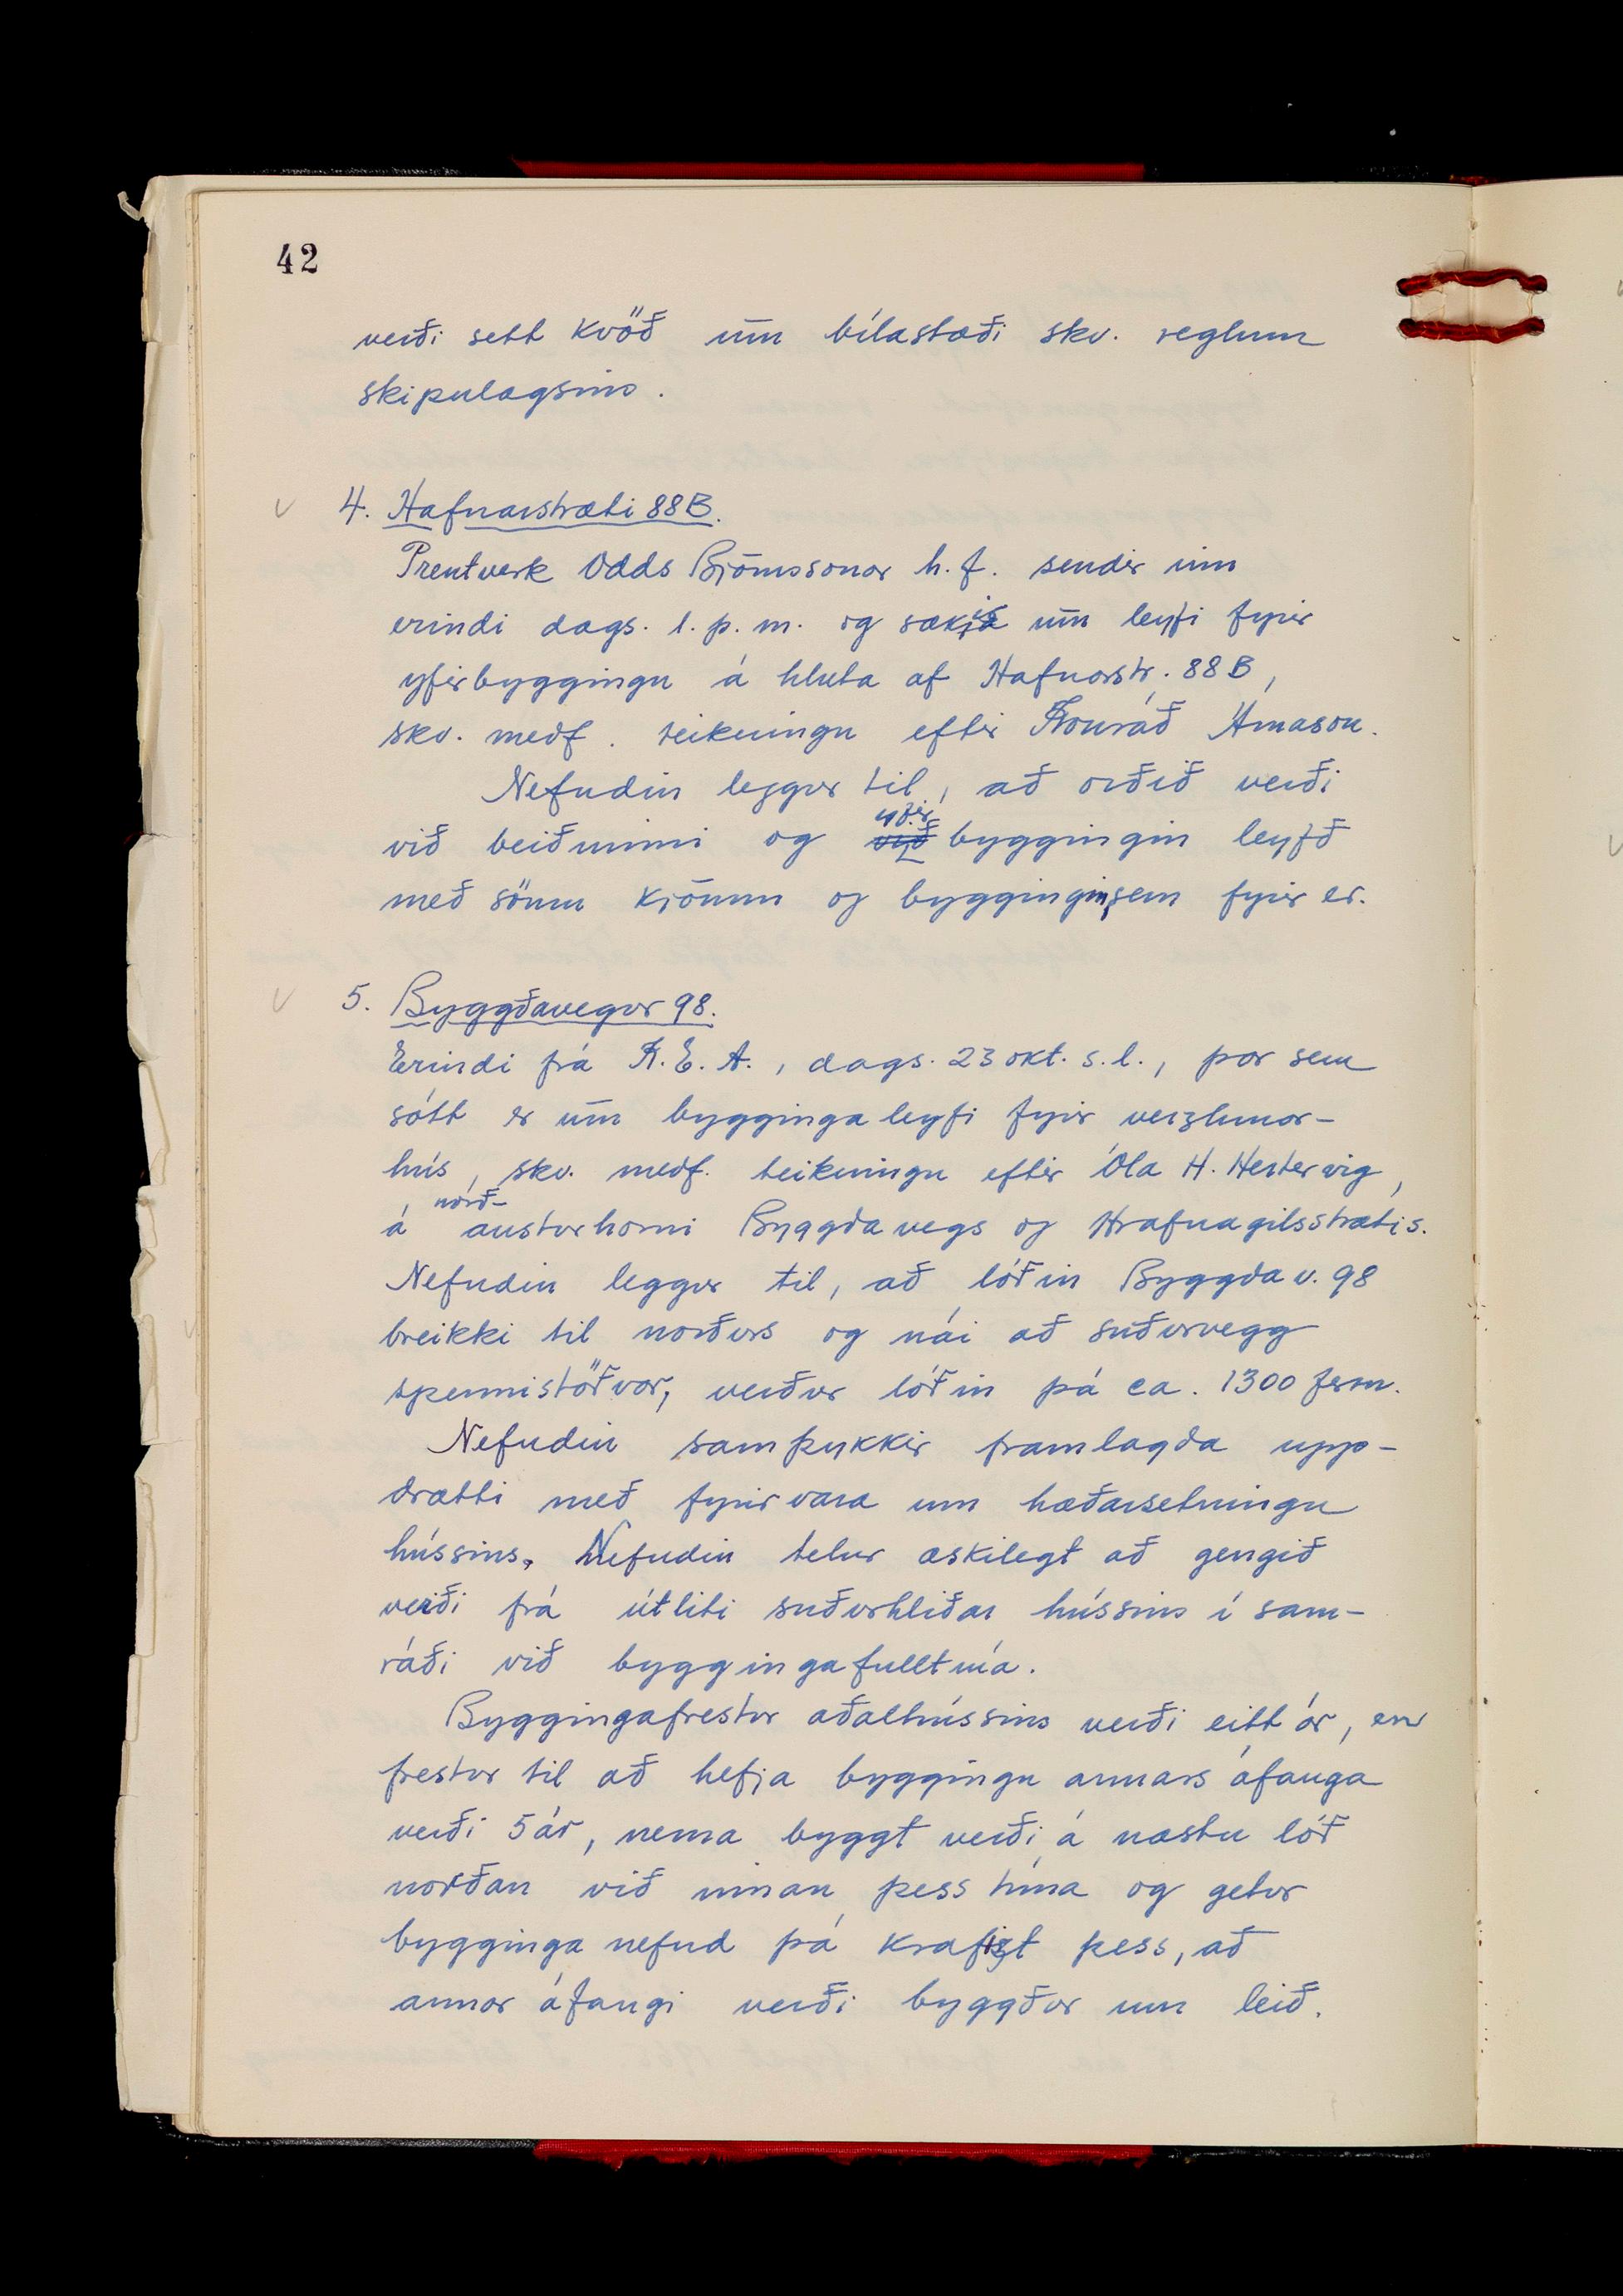 42
verði sett kvöð um bílastæði skv. reglum
skipulagsins.
4. Hafnarstræti 88B.
Prentverk Odds Björnssonar h.f. sendir inn
erindi dags. 1. þ. m. og sækir um leyfi fyrir
yfirbyggingu á hluta af Hafnarstr. 88B,
skv. meðf. teikningu eftir Konráð Árnason.
Nefndin leggur til, að orðið verði
við beiðninni og yfirbyggingin leyfð
með sömu kjörum og byggingin, sem fyrir er.
5. Byggðavegur 98.
Erindi frá K.E.A., dags. 23 okt. s.l., þar sem
sótt er um byggingaleyfi fyrir verzlunar-
hús, skv. meðf. teikningu eftir Óla H. Hertervig,
á norð-austurhorni Byggðavegs og Hrafnagilsstrætis.
Nefndin leggur til, að lóðin Byggðav. 98
breikki til norðurs og nái að suðurvegg
spennistöðvar, verður lóðin þá ca. 1300 ferm.
Nefndin samþykkir framlagða upp-
drætti með fyrirvara um hæðarsetningu
hússins. Nefndin telur æskilegt að gengið
verði frá útliti suðurhliðar hússins í sam-
ráði við byggingafulltrúa.
Byggingafrestur aðalhússins verði eitt ár, en
frestur til að hefja byggingu annars áfanga
verði 5 ár, nema byggt verði á næstu lóð
norðan við innan þess tíma og getur
bygginganefnd þá krafizt þess, að
annar áfangi verði byggður um leið.